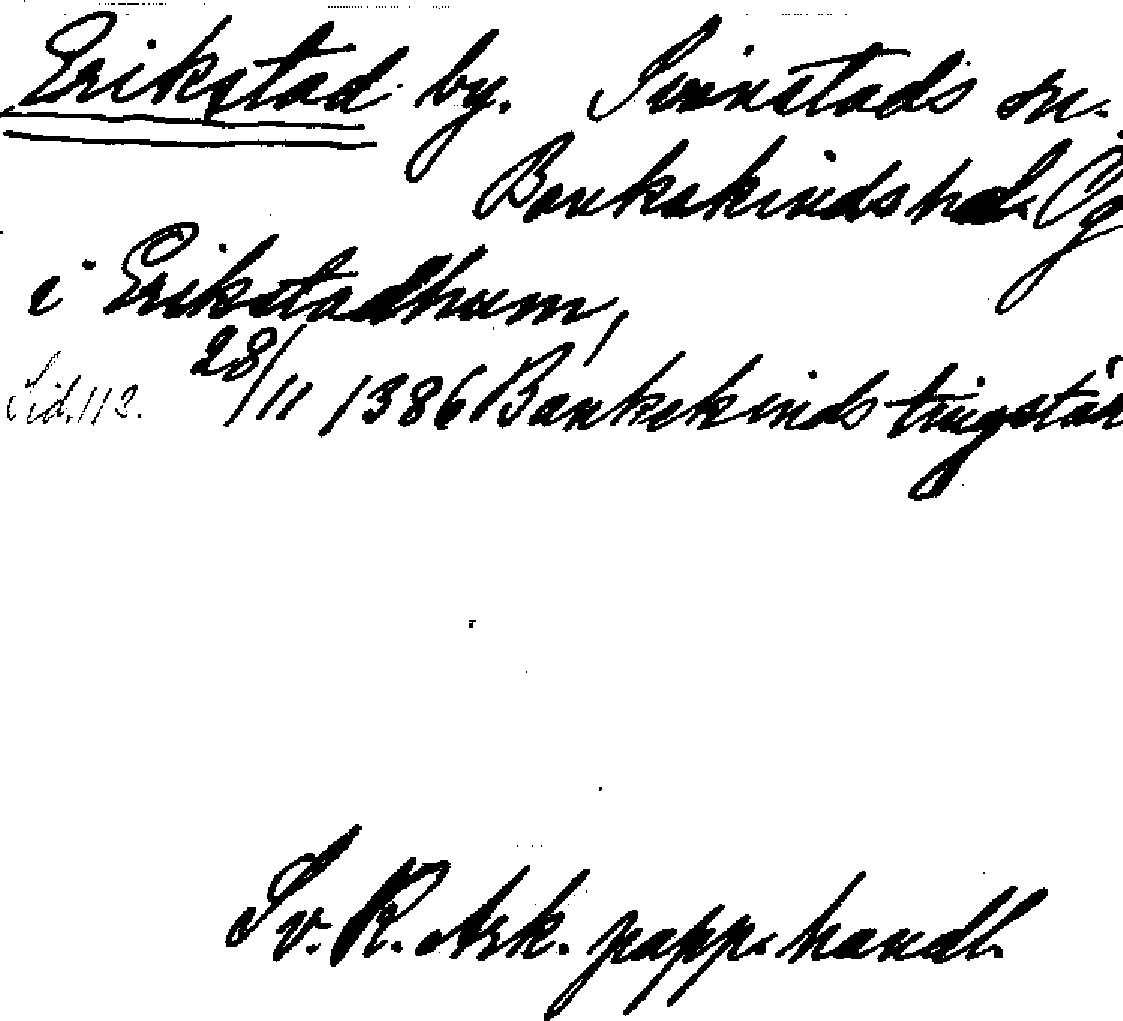 Erikstad by. Svinstads sn.
Bankekindshd. Ög
i Erikstadhum,
Sid. 112. 28/11 1386 Bankekinds tingstä
Sv. R. Ark. papp. handl.